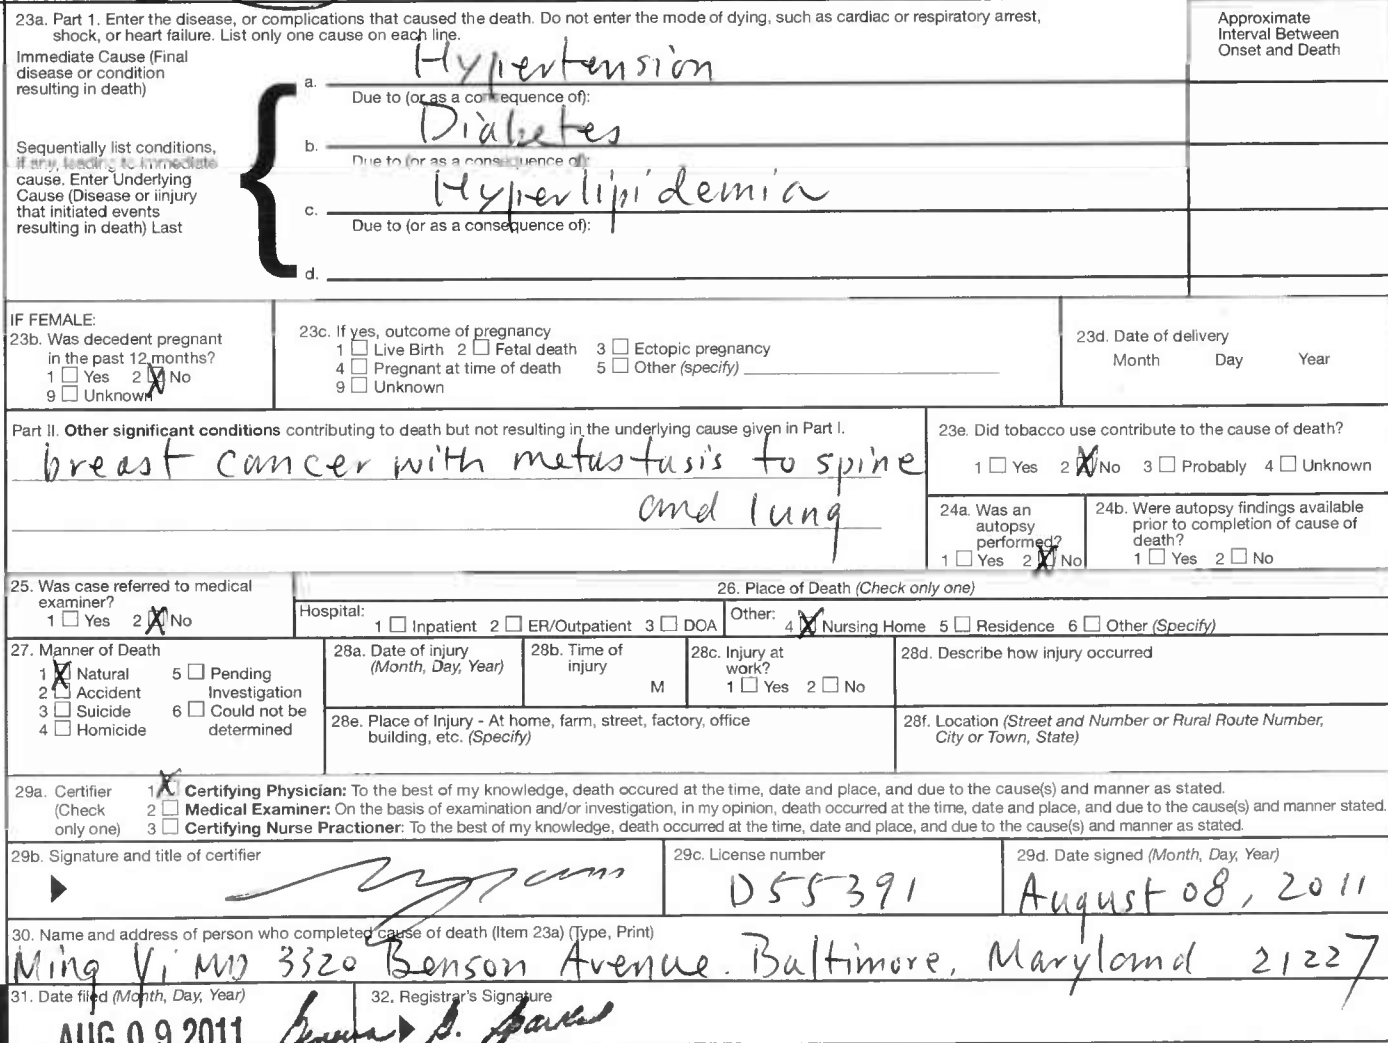 23a. Part 1. Enter the disease, or complications that caused the death. Do not enter the mode of dying, such as cardiac or respiratory arrest,
shock, or heart failure. List only one cause on each line.
Approximate
Interval Between
Onset and Death
Immediate Cause (Final
disease or condition
resulting in death)
a. Hypertension
Due to (or as a consequence of):
Sequentially list conditions,
if any, leading to immediate
cause. Enter Underlying
Cause (Disease or iinjury
that initiated events
resulting in death) Last
b. Diabetes
Due to (or as a consequence of):
c. Hyperlipidemia
Due to (or as a consequence of):
d.
IF FEMALE:
23b. Was decedent pregnant
in the past 12 months?
1 ☐ Yes 2 ☒ No
9 ☐ Unknown
23c. If yes, outcome of pregnancy
1 ☐ Live Birth 2 ☐ Fetal death 3 ☐ Ectopic pregnancy
4 ☐ Pregnant at time of death 5 ☐ Other (specify)
9 ☐ Unknown
23d. Date of delivery
Month Day Year
Part II. Other significant conditions contributing to death but not resulting in the underlying cause given in Part I.
breast cancer with metastasis to spine
and lung
23e. Did tobacco use contribute to the cause of death?
1 ☐ Yes 2 ☒ No 3 ☐ Probably 4 ☐ Unknown
24a. Was an
autopsy
performed?
1 ☐ Yes 2 ☒ No
24b. Were autopsy findings available
prior to completion of cause of
death?
1 ☐ Yes 2 ☐ No
25. Was case referred to medical
examiner?
1 ☐ Yes 2 ☒ No
26. Place of Death (Check only one)
Hospital: 1 ☐ Inpatient 2 ☐ ER/Outpatient 3 ☐ DOA Other: 4 ☒ Nursing Home 5 ☐ Residence 6 ☐ Other (Specify)
27. Manner of Death
1 ☒ Natural 5 ☐ Pending
2 ☐ Accident Investigation
3 ☐ Suicide 6 ☐ Could not be
4 ☐ Homicide determined
28a. Date of injury
(Month, Day, Year)
28b. Time of
injury
M
28c. Injury at
work?
1 ☐ Yes 2 ☐ No
28d. Describe how injury occurred
28e. Place of Injury - At home, farm, street, factory, office
building, etc. (Specify)
28f. Location (Street and Number or Rural Route Number,
City or Town, State)
29a. Certifier
(Check
only one)
1 ☒ Certifying Physician: To the best of my knowledge, death occured at the time, date and place, and due to the cause(s) and manner as stated.
2 ☐ Medical Examiner: On the basis of examination and/or investigation, in my opinion, death occurred at the time, date and place, and due to the cause(s) and manner stated.
3 ☐ Certifying Nurse Practioner: To the best of my knowledge, death occurred at the time, date and place, and due to the cause(s) and manner as stated.
29b. Signature and title of certifier
29c. License number
D55391
29d. Date signed (Month, Day, Year)
August 08, 2011
30. Name and address of person who completed cause of death (Item 23a) (Type, Print)
Ming Yi MD 3320 Benson Avenue. Baltimore, Maryland 21227
31. Date filed (Month, Day, Year)
AUG 09 2011
32. Registrar's Signature